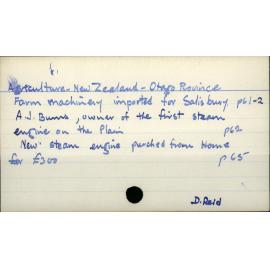 Agriculture - New Zealand - Otago Province
Farm machinery imported for Salisbury p61-2
A.J. Burns, owner of the first steam
engine on the Plain p62
New steam engine purched from Home
for £300 p65
D. Reid